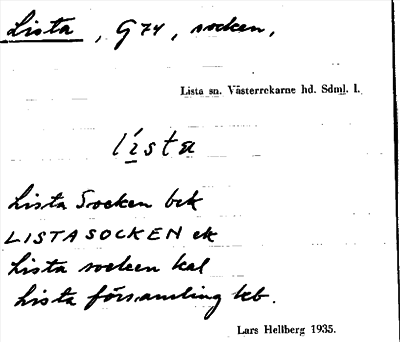 Lista, G74, socken,
Lista sn. Västerrekarne hd. Sdml. l.
lísta
Lista Socken bek
LISTA SOCKEN ek
Lista socken kal
Lista församling kb.
Lars Hellberg 1935.